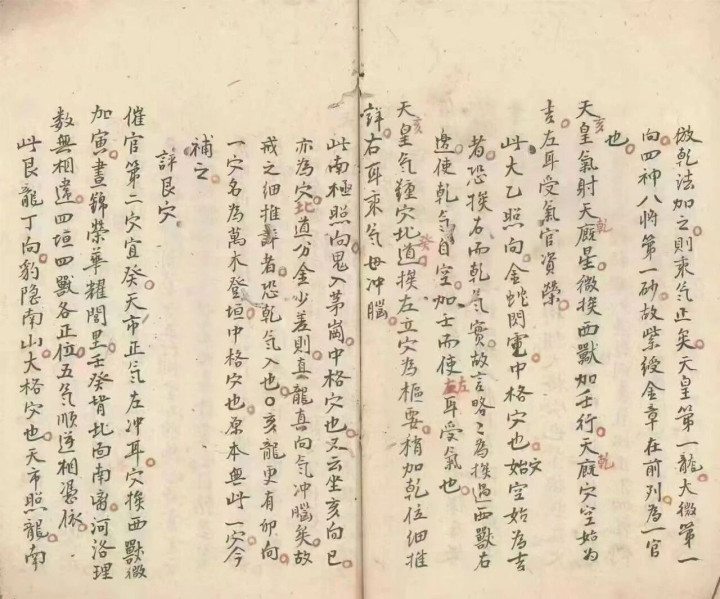 放乾法加之則來氣正矣天皇第一龍大微第一
向四神八將第一砂故紫綬金章在前列為一官
也
天皇氣射天厩星微挨西獸加壬行天厩穴空始為
吉左耳受氣官資榮
此大乙照向金蛇閃電中格穴也始空始為吉
者恐挨右而乾氣實故言略々為挨過西獸右
邊使乾氣自空加壬而使左耳受氣也
天皇氣鍾穴北道挨左立穴為樞要稍加乾位細推
詳右耳乘氣毋冲腦
此南極照向鬼入茅崗中格穴也又云坐亥向巳
亦為穴北道分金少差則真龍真向氣冲腦矣故
戒之細推辭者恐乾氣入也亥龍更有卯向
一穴名為萬水登垣中格穴也原本無此一穴今
補之
評艮穴
催官第二穴宜癸天市正氣左冲耳穴挨西獸微
加寅晝錦榮華耀閭里壬癸背北面南离河洛理
数無相違四垣四獸各正位五氣順逆相憑依
此艮龍丁向豹隐南山大格穴也天市照龍南